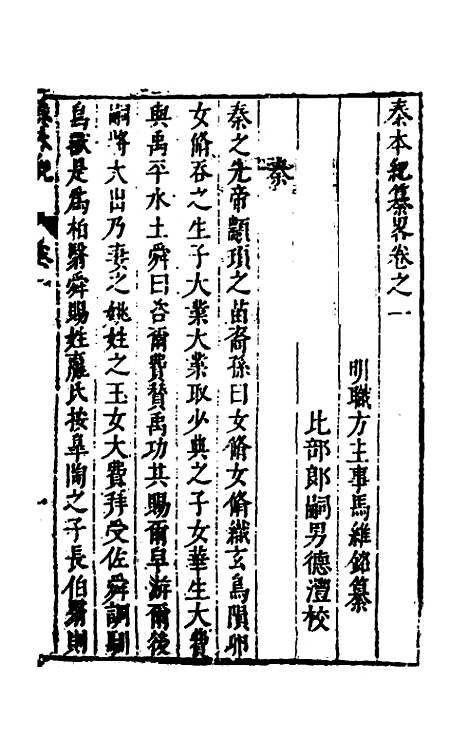 秦本紀纂畧卷之一
明職方主事馬維銘纂
比部郎嗣男德澧校
秦
秦之先帝顓頊之苗裔孫曰女脩女脩織玄鳥隕卵
女脩吞之生子大業大業取少典之子女華生大費
與禹平水土舜曰咨爾費贊禹功其賜爾皁游爾後
嗣將大出乃妻之姚姓之玉女大費拜受佐舜調馴
鳥獸是爲柏翳舜賜姓嬴氏按皐陶之子長伯翳則